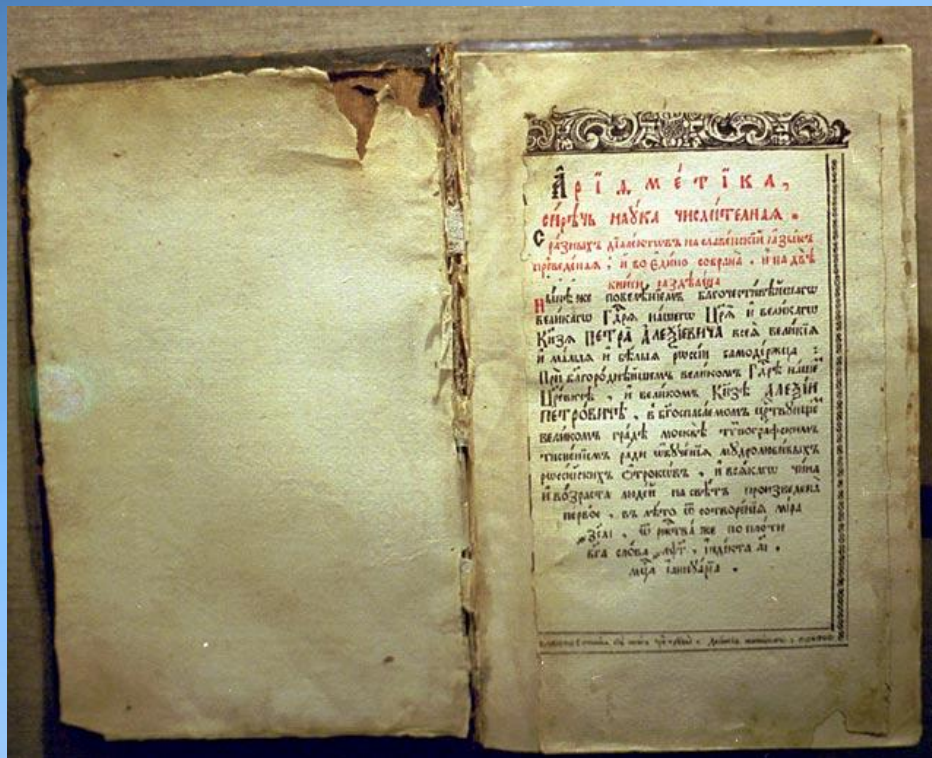 А҆ р і ѳ м е́ т і к а ,
сирѣчь наука числителная .
С разныхъ діалектѡвъ на славенскій ꙗзыкъ
преведеная , и во едино собрана , и на двѣ
книги раздѣлена
Нынѣ же повелѣніемъ благочестивѣйшагѡ
великагѡ Гдⷭ҇рѧ нашегѡ Цр҃ѧ и великагѡ
Кн҃зѧ ПЕТРА АЛЕѮІЕВИЧА всеѧ великіѧ
и малыѧ и бѣлыѧ рѡссіи самодержца :
При благороднѣйшемъ великомъ Гдⷭ҇рѣ нашемъ
Цр҃евичѣ , и великомъ Кн҃зѣ АЛЕѮІИ
ПЕТРОВИЧѢ , в бг҃оспасаемомъ црⷭ҇твующемъ
великомъ градѣ москвѣ тѷпографскимъ
тисненіемъ ради ѡбученіѧ мудролюбивыхъ
рѡссійскихъ ѻтрокѡвъ , и всѧкагѡ чина
и возраста людей на свѣтъ произведена
первое , въ лѣто ѿ сотвореніѧ міра
҂зсаі , ѿ ржⷭ҇тва же по плоти
бг҃а слова ҂аѱг , індікта аі .
мцⷭ҇а іаннуаріа .